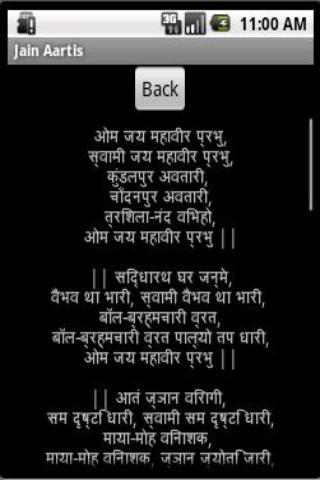 3G
11:00 AM
Jain Aartis
Back
ओम जय महावीर प्रभु,
स्वामी जय महावीर प्रभु,
कुंडलपुर अवतारी,
चाँदनपुर अवतारी,
त्रशिला-नंद वभिहो,
ओम जय महावीर प्रभु ||
|| सद्धिारथ घर जन्मे,
वैभव था भारी, स्वामी वैभव था भारी,
बॉल-ब्रह्मचारी व्रत,
बॉल-ब्रह्मचारी व्रत पाल्यो तप धारी,
ओम जय महावीर प्रभु ||
|| आतं ज्ञान वरिागी,
सम दृष्टिधारी, स्वामी सम दृष्टिधारी,
माया-मोह वनिाशक,
माया-मोह वनिाशक, ज्ञान ज्योतजिारी,